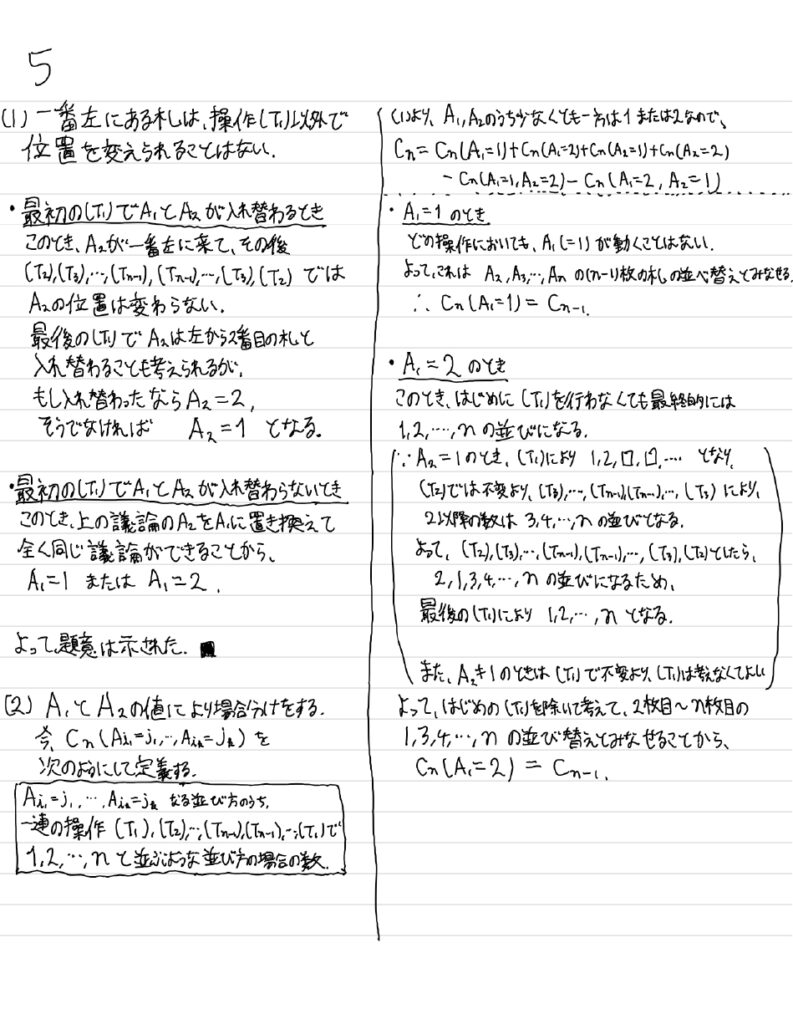 5
(1) 一番左にある札は、操作(T₁)以外で
位置を変えられることはない.
・最初の(T₁)でA₁とA₂が入れ替わるとき
このとき、A₂が一番左に来て、その後
(T₂),(T₃),…,(Tn-1),(Tn-1),…,(T₃),(T₂) では
A₂の位置は変わらない.
最後の(T₁)でA₂は左から2番目の札と
入れ替わることも考えられるが、
もし入れ替わったならA₂=2,
そうでなければ A₂=1 となる.
・最初の(T₁)でA₁とA₂が入れ替わらないとき
このとき、上の議論のA₂をA₁に置き換えて
全く同じ議論ができることから、
A₁=1 または A₁=2.
よって題意は示された. ■
(2) A₁とA₂の値により場合分けをする.
今、Cn(Ai₁=j₁,…,Aik=jk)を
次のようにして定義する.
Ai₁=j₁,…,Aik=jk なる並び方のうち、
一連の操作 (T₁),(T₂),…,(Tn-1),(Tn-1),…,(T₁)で
1,2,…,n と並ぶような並び方の場合の数.
(1)より、A₁,A₂のうち少なくとも一方は1または2なので、
Cn = Cn(A₁=1)+Cn(A₁=2)+Cn(A₂=1)+Cn(A₂=2)
-Cn(A₁=1,A₂=2)-Cn(A₁=2,A₂=1)
・A₁=1 のとき
どの操作においても、A₁(=1)が動くことはない.
よって、これは A₂,A₃,…,Anの(n-1)枚の札の並べ替えとみなせる.
∴ Cn(A₁=1) = Cn-1.
・A₁=2 のとき
このとき、はじめに(T₁)を行わなくても最終的には
1,2,…,n の並びになる.
∵ A₂=1のとき、(T₁)により 1,2,□,□,… となり、
(T₂)では不変より、(T₃),…,(Tn-1),(Tn-1),…,(T₃)により、
2以降の数は 3,4,…,n の並びとなる.
よって、(T₂),(T₃),…,(Tn-1),(Tn-1),…,(T₃),(T₂)としたら、
2,1,3,4,…,n の並びになるため、
最後の(T₁)により 1,2,…,n となる.
また、A₂≠1のときは(T₁)で不変より、(T₁)は考えなくてよい
よって、はじめの(T₁)を除いて考えて、2枚目〜n枚目の
1,3,4,…,n の並び替えとみなせることから、
Cn(A₁=2) = Cn-1.